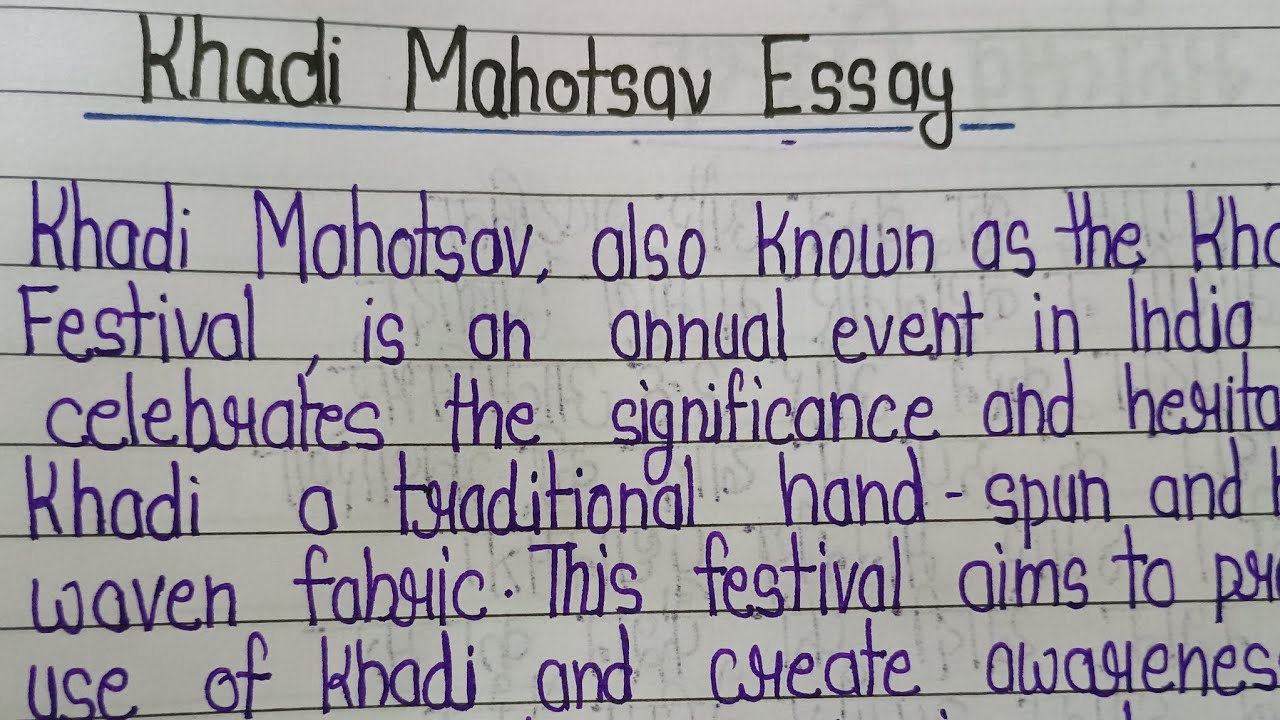 Khadi Mahotsav Essay
Khadi Mahotsav, also known as the
Festival, is an annual event in India
celebrates the significance and
Khadi a traditional hand-spun and
woven fabric. This festival aims to
use of Khadi and create